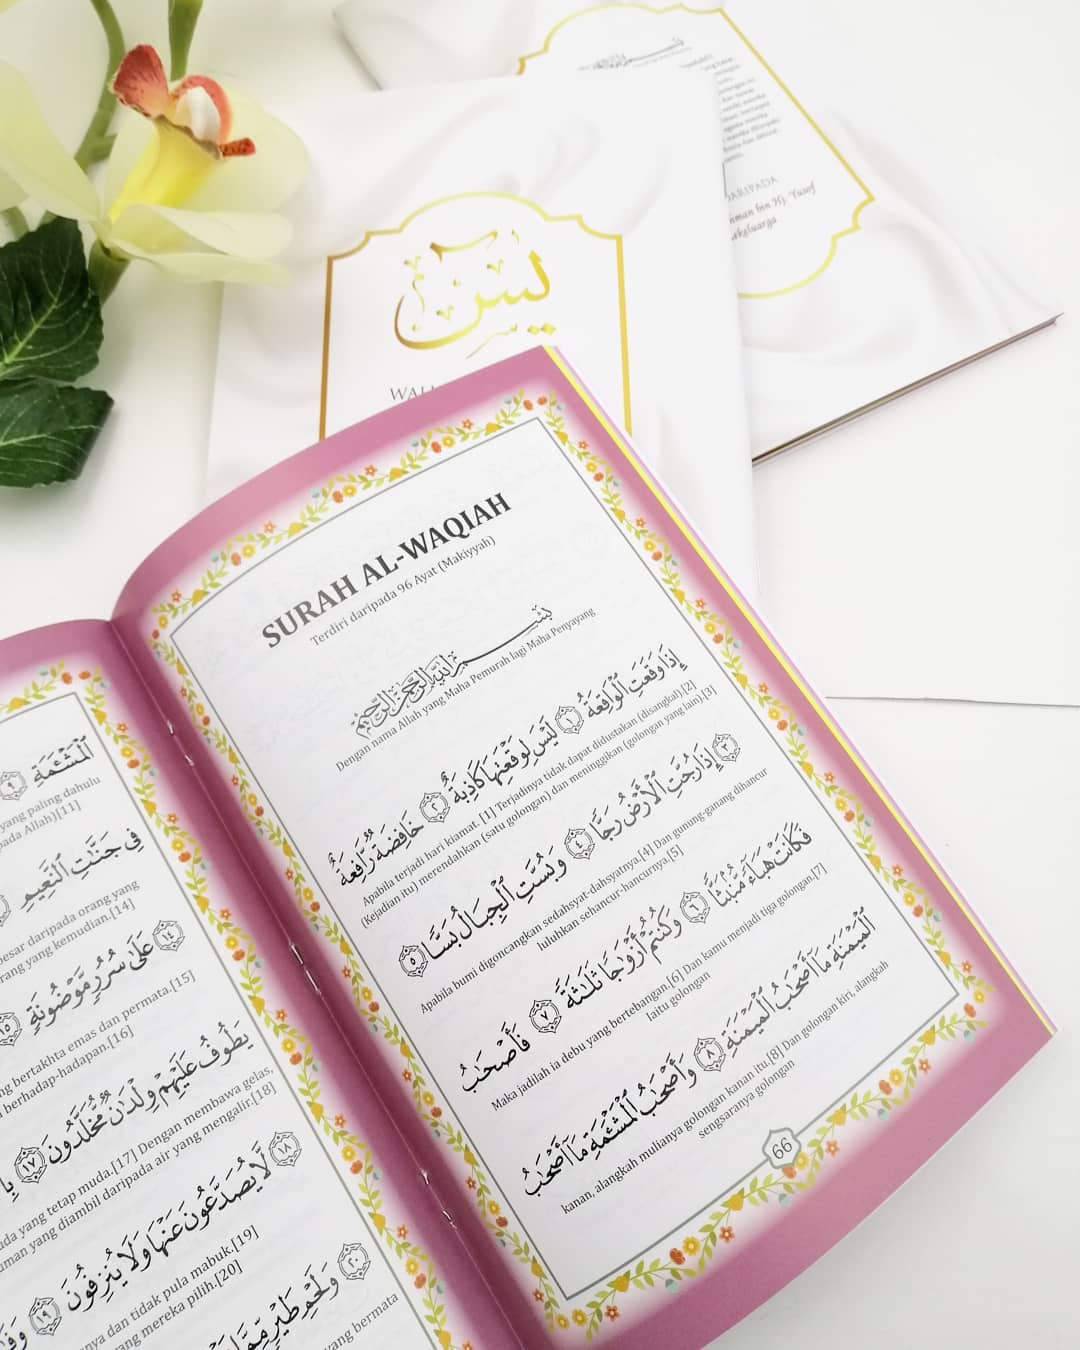 يس
SURAH AL-WAQIAH
Terdiri daripada 96 Ayat (Makiyyah)
بِسْمِ اللَّهِ الرَّحْمَٰنِ الرَّحِيمِ
Dengan nama Allah yang Maha Pemurah lagi Maha Penyayang
إِذَا وَقَعَتِ ٱلْوَاقِعَةُ ١ لَيْسَ لِوَقْعَتِهَا كَاذِبَةٌ ٢ خَافِضَةٌ رَّافِعَةٌ
Apabila terjadi hari kiamat. [1] Terjadinya tidak dapat didustakan (disangkal).[2]
(Kejadian itu) merendahkan (satu golongan) dan meninggikan (golongan yang lain).[3]
٣ إِذَا رُجَّتِ ٱلْأَرْضُ رَجًّا ٤ وَبُسَّتِ ٱلْجِبَالُ بَسًّا ٥
Apabila bumi digoncangkan sedahsyat-dahsyatnya.[4] Dan gunung-ganang dihancur
luluhkan sehancur-hancurnya.[5]
فَكَانَتْ هَبَآءً مُّنۢبَثًّا ٦ وَكُنتُمْ أَزْوَٰجًا ثَلَٰثَةً ٧ فَأَصْحَٰبُ
Maka jadilah ia debu yang bertebangan.[6] Dan kamu menjadi tiga golongan.[7]
Iaitu golongan
ٱلْمَيْمَنَةِ مَآ أَصْحَٰبُ ٱلْمَيْمَنَةِ ٨ وَأَصْحَٰبُ ٱلْمَشْـَٔمَةِ مَآ أَصْحَٰبُ
kanan, alangkah mulianya golongan kanan itu.[8] Dan golongan kiri, alangkah
sengsaranya golongan
66
ٱلْمَشْـَٔمَةِ ٩
yang paling dahulu
Allah)[11]
فِى جَنَّٰتِ ٱلنَّعِيمِ
daripada orang yang
yang kemudian.[14]
١٤ عَلَىٰ سُرُرٍ مَّوْضُونَةٍ ١٥
bertakhta emas dan permata.[15]
berhadap-hadapan.[16]
يَطُوفُ عَلَيْهِمْ وِلْدَٰنٌ مُّخَلَّدُونَ ١٧
yang tetap muda.[17] Dengan membawa gelas,
yang diambil daripada air yang mengalir.[18]
١٨ لَّا يُصَدَّعُونَ عَنْهَا وَلَا يُنزِفُونَ ١٩
dan tidak pula mabuk.[19]
yang mereka pilih.[20]
٢٠ وَلَحْمِ طَيْرٍ مِّمَّا
yang bermata
bin Hj. Yusof